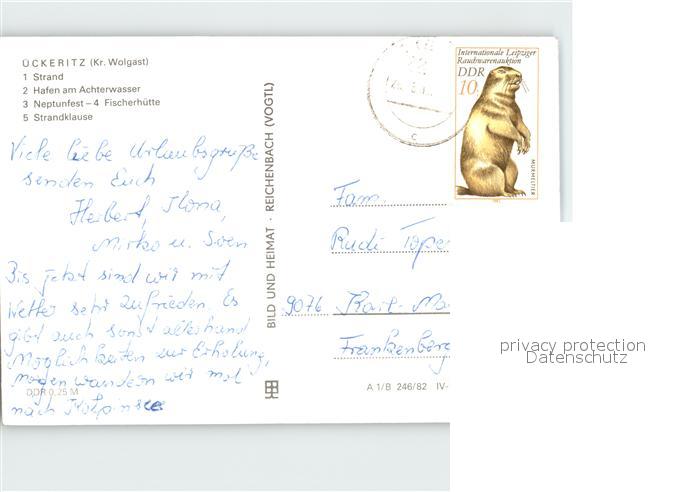 ÜCKERITZ (Kr. Wolgast)
1 Strand
2 Hafen am Achterwasser
3 Neptunfest – 4 Fischerhütte
5 Strandklause
Viele liebe Urlaubsgrüße
senden Euch
Herbert, Ilona,
Mirko u. Sven
Bis jetzt sind wir mit
Wetter sehr zufrieden. Es
gibt auch sonst allerhand
Möglichkeiten zur Erholung,
morgen wandern wir mal
nach Kölpinsee
DDR 0,25 M
BILD UND HEIMAT · REICHENBACH (VOGTL)
Internationale Leipziger
Rauchwarenauktion
DDR
10
MURMELTIER
1982
c
Fam.
Rudi
9076 Karl-Ma
Frankenberg
A 1/B 246/82 IV-
privacy protection
Datenschutz